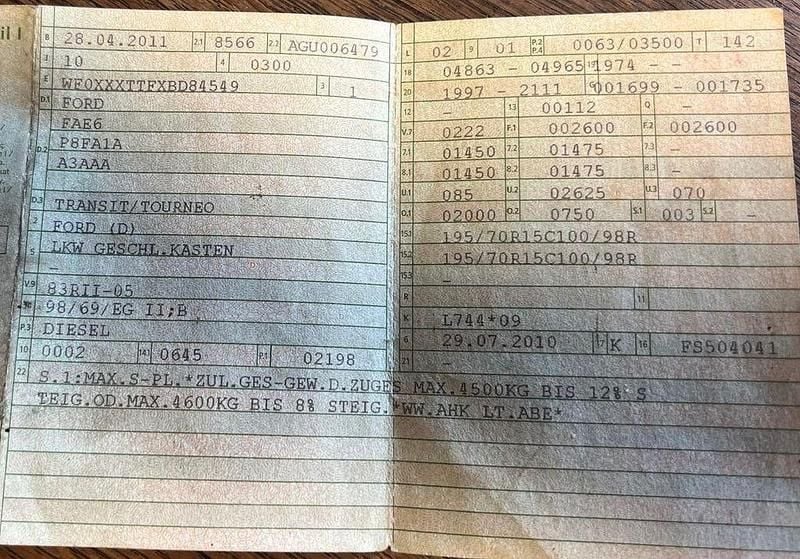 B 28.04.2011 2.1 8566 2.2 AGU006479
J 10 4 0300
E WF0XXXTTFXBD84549 3 1
D.1 FORD
FAE6
D.2 P8FA1A
A3AAA
D.3 TRANSIT/TOURNEO
2 FORD (D)
5 LKW GESCHL.KASTEN
–
V.9 83RII-05
98/69/EG II;B
P.3 DIESEL
10 0002 14.1 0645 P.1 02198
L 02 9 01 P.2 P.4 0063/03500 T 142
18 04863 – 04965 19 1974 – –
20 1997 – 2111 G 001699 – 001735
12 – 13 00112 Q –
V.7 0222 F.1 002600 F.2 002600
7.1 01450 7.2 01475 7.3 –
8.1 01450 8.2 01475 8.3 –
U.1 085 U.2 02625 U.3 070
O.1 02000 O.2 0750 S.1 003 S.2 –
15.1 195/70R15C100/98R
15.2 195/70R15C100/98R
15.3 –
R 11
K L744*09
6 29.07.2010 17 K 16 FS504041
21 –
22 S.1:MAX.S-PL.*ZUL.GES-GEW.D.ZUGES MAX.4500KG BIS 12% S
TEIG.OD.MAX.4600KG BIS 8% STEIG.*WW.AHK LT.ABE*